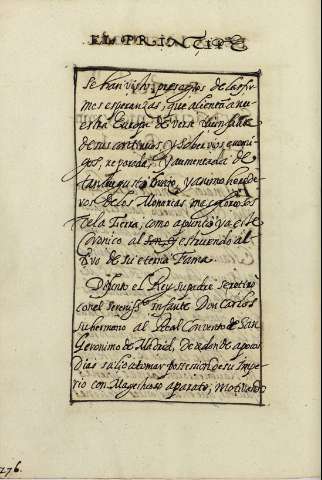 EL PRINCIPE
Se han visto presagios de las fir
mes esperanzas, que alientan a nu
estra Europa de verse triunfante
de sus contrarios, y soberbios enemi
gos, reparada, y aumentada de
tan Augusto Tronco, y animo herede
ros de los Monarcas mas gloriosos
de la Tierra, como apunto ya este
Coronico al son y estruendo al
tivo de su eterna Fama.
Difunto el Rey su padre se retiro
con el Sereniss.º infante Don Carlos
su hermano al Real Convento de San
Geronimo de Madrid, de donde a pocos
dias salio a tomar possession de su Impe
rio con Magestuoso aparato, motivando
276.